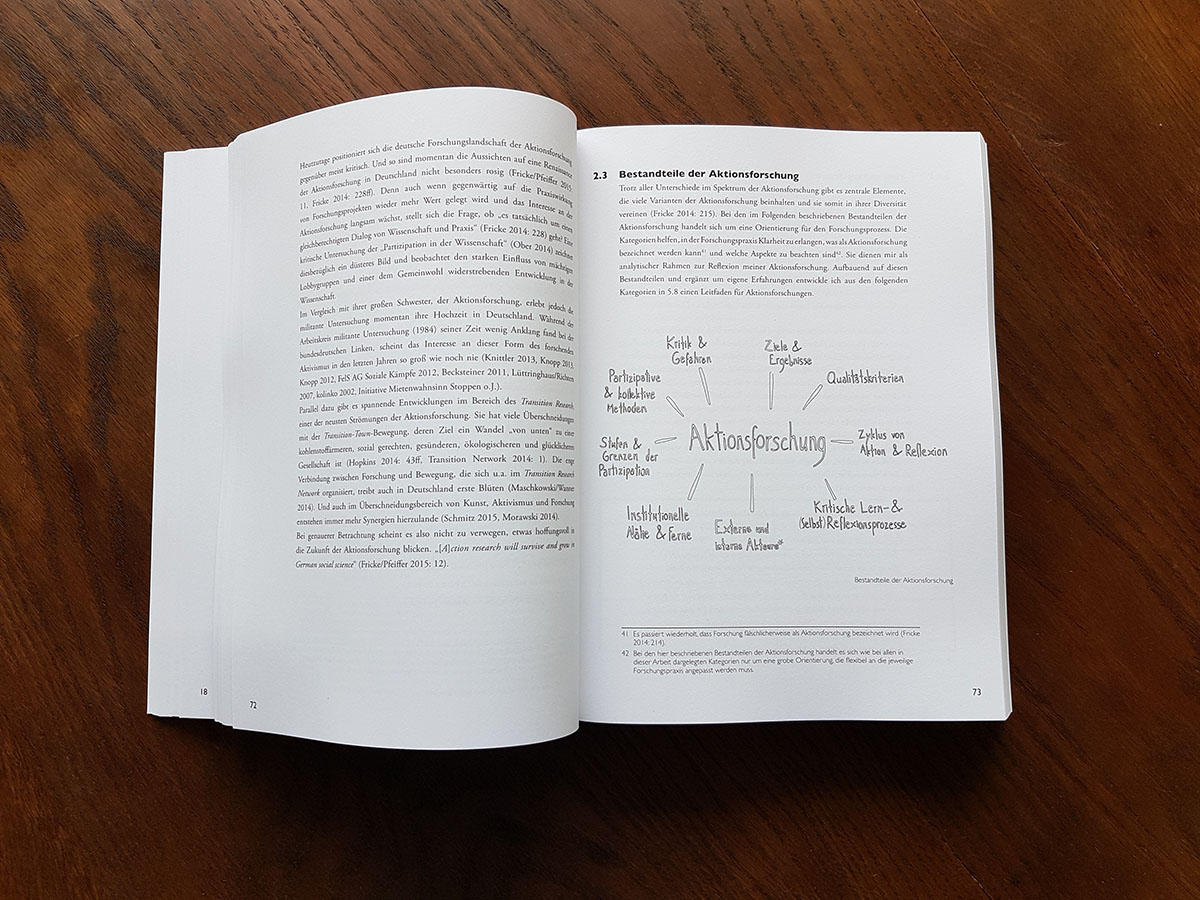 Heutzutage positioniert sich die deutsche Forschungslandschaft der Aktionsforschung
gegenüber meist kritisch. Und so sind momentan die Aussichten auf eine Renaissance
der Aktionsforschung in Deutschland nicht besonders rosig (Fricke/Pfeiffer 2015:
11, Fricke 2014: 228ff). Denn auch wenn gegenwärtig auf die Praxiswirkung
von Forschungsprojekten wieder mehr Wert gelegt wird und das Interesse an der
Aktionsforschung langsam wächst, stellt sich die Frage, ob „es tatsächlich um einen
gleichberechtigten Dialog von Wissenschaft und Praxis“ (Fricke 2014: 228) geht? Eine
kritische Untersuchung der „Partizipation in der Wissenschaft“ (Ober 2014) zeichnet
diesbezüglich ein düsteres Bild und beobachtet den starken Einfluss von mächtigen
Lobbygruppen und einer dem Gemeinwohl widerstrebenden Entwicklung in der
Wissenschaft.
Im Vergleich mit ihrer großen Schwester, der Aktionsforschung, erlebt jedoch die
militante Untersuchung momentan ihre Hochzeit in Deutschland. Während der
Arbeitskreis militante Untersuchung (1984) seiner Zeit wenig Anklang fand bei der
bundesdeutschen Linken, scheint das Interesse an dieser Form des forschenden
Aktivismus in den letzten Jahren so groß wie noch nie (Knittler 2013, Knopp 2013,
Knopp 2012, FelS AG Soziale Kämpfe 2012, Becksteiner 2011, Lüttringhaus/Richters
2007, kolinko 2002, Initiative Mietenwahnsinn Stoppen o.J.).
Parallel dazu gibt es spannende Entwicklungen im Bereich des Transition Research,
einer der neusten Strömungen der Aktionsforschung. Sie hat viele Überschneidungen
mit der Transition-Town-Bewegung, deren Ziel ein Wandel „von unten“ zu einer
kohlenstoffärmeren, sozial gerechten, gesünderen, ökologischeren und glücklicheren
Gesellschaft ist (Hopkins 2014: 43ff, Transition Network 2014: 1). Die enge
Verbindung zwischen Forschung und Bewegung, die sich u.a. im Transition Research
Network organisiert, treibt auch in Deutschland erste Blüten (Maschkowski/Wanner
2014). Und auch im Überschneidungsbereich von Kunst, Aktivismus und Forschung
entstehen immer mehr Synergien hierzulande (Schmitz 2015, Morawski 2014).
Bei genauerer Betrachtung scheint es also nicht zu verwegen, etwas hoffnungsvoll in
die Zukunft der Aktionsforschung blicken. „[A]ction research will survive and grow in
German social science“ (Fricke/Pfeiffer 2015: 12).
18
72
2.3 Bestandteile der Aktionsforschung
Trotz aller Unterschiede im Spektrum der Aktionsforschung gibt es zentrale Elemente,
die viele Varianten der Aktionsforschung beinhalten und sie somit in ihrer Diversität
vereinen (Fricke 2014: 215). Bei den im Folgenden beschriebenen Bestandteilen der
Aktionsforschung handelt sich um eine Orientierung für den Forschungsprozess. Die
Kategorien helfen, in der Forschungspraxis Klarheit zu erlangen, was als Aktionsforschung
bezeichnet werden kann41 und welche Aspekte zu beachten sind42. Sie dienen mir als
analytischer Rahmen zur Reflexion meiner Aktionsforschung. Aufbauend auf diesen
Bestandteilen und ergänzt um eigene Erfahrungen entwickle ich aus den folgenden
Kategorien in 5.8 einen Leitfaden für Aktionsforschungen.
Kritik &
Gefahren
Ziele &
Ergebnisse
Partizipative
& kollektive
Methoden
Qualitätskriterien
Aktionsforschung
Stufen &
Grenzen der
Partizipation
Zyklus von
Aktion & Reflexion
Institutionelle
Nähe & Ferne
Externe und
interne Akteure*
Kritische Lern-&
(Selbst)Reflexionsprozesse
Bestandteile der Aktionsforschung
41 Es passiert wiederholt, dass Forschung fälschlicherweise als Aktionsforschung bezeichnet wird (Fricke
2014: 214).
42 Bei den hier beschriebenen Bestandteilen der Aktionsforschung handelt es sich wie bei allen in
dieser Arbeit dargelegten Kategorien nur um eine grobe Orientierung, die flexibel an die jeweilige
Forschungspraxis angepasst werden muss.
73